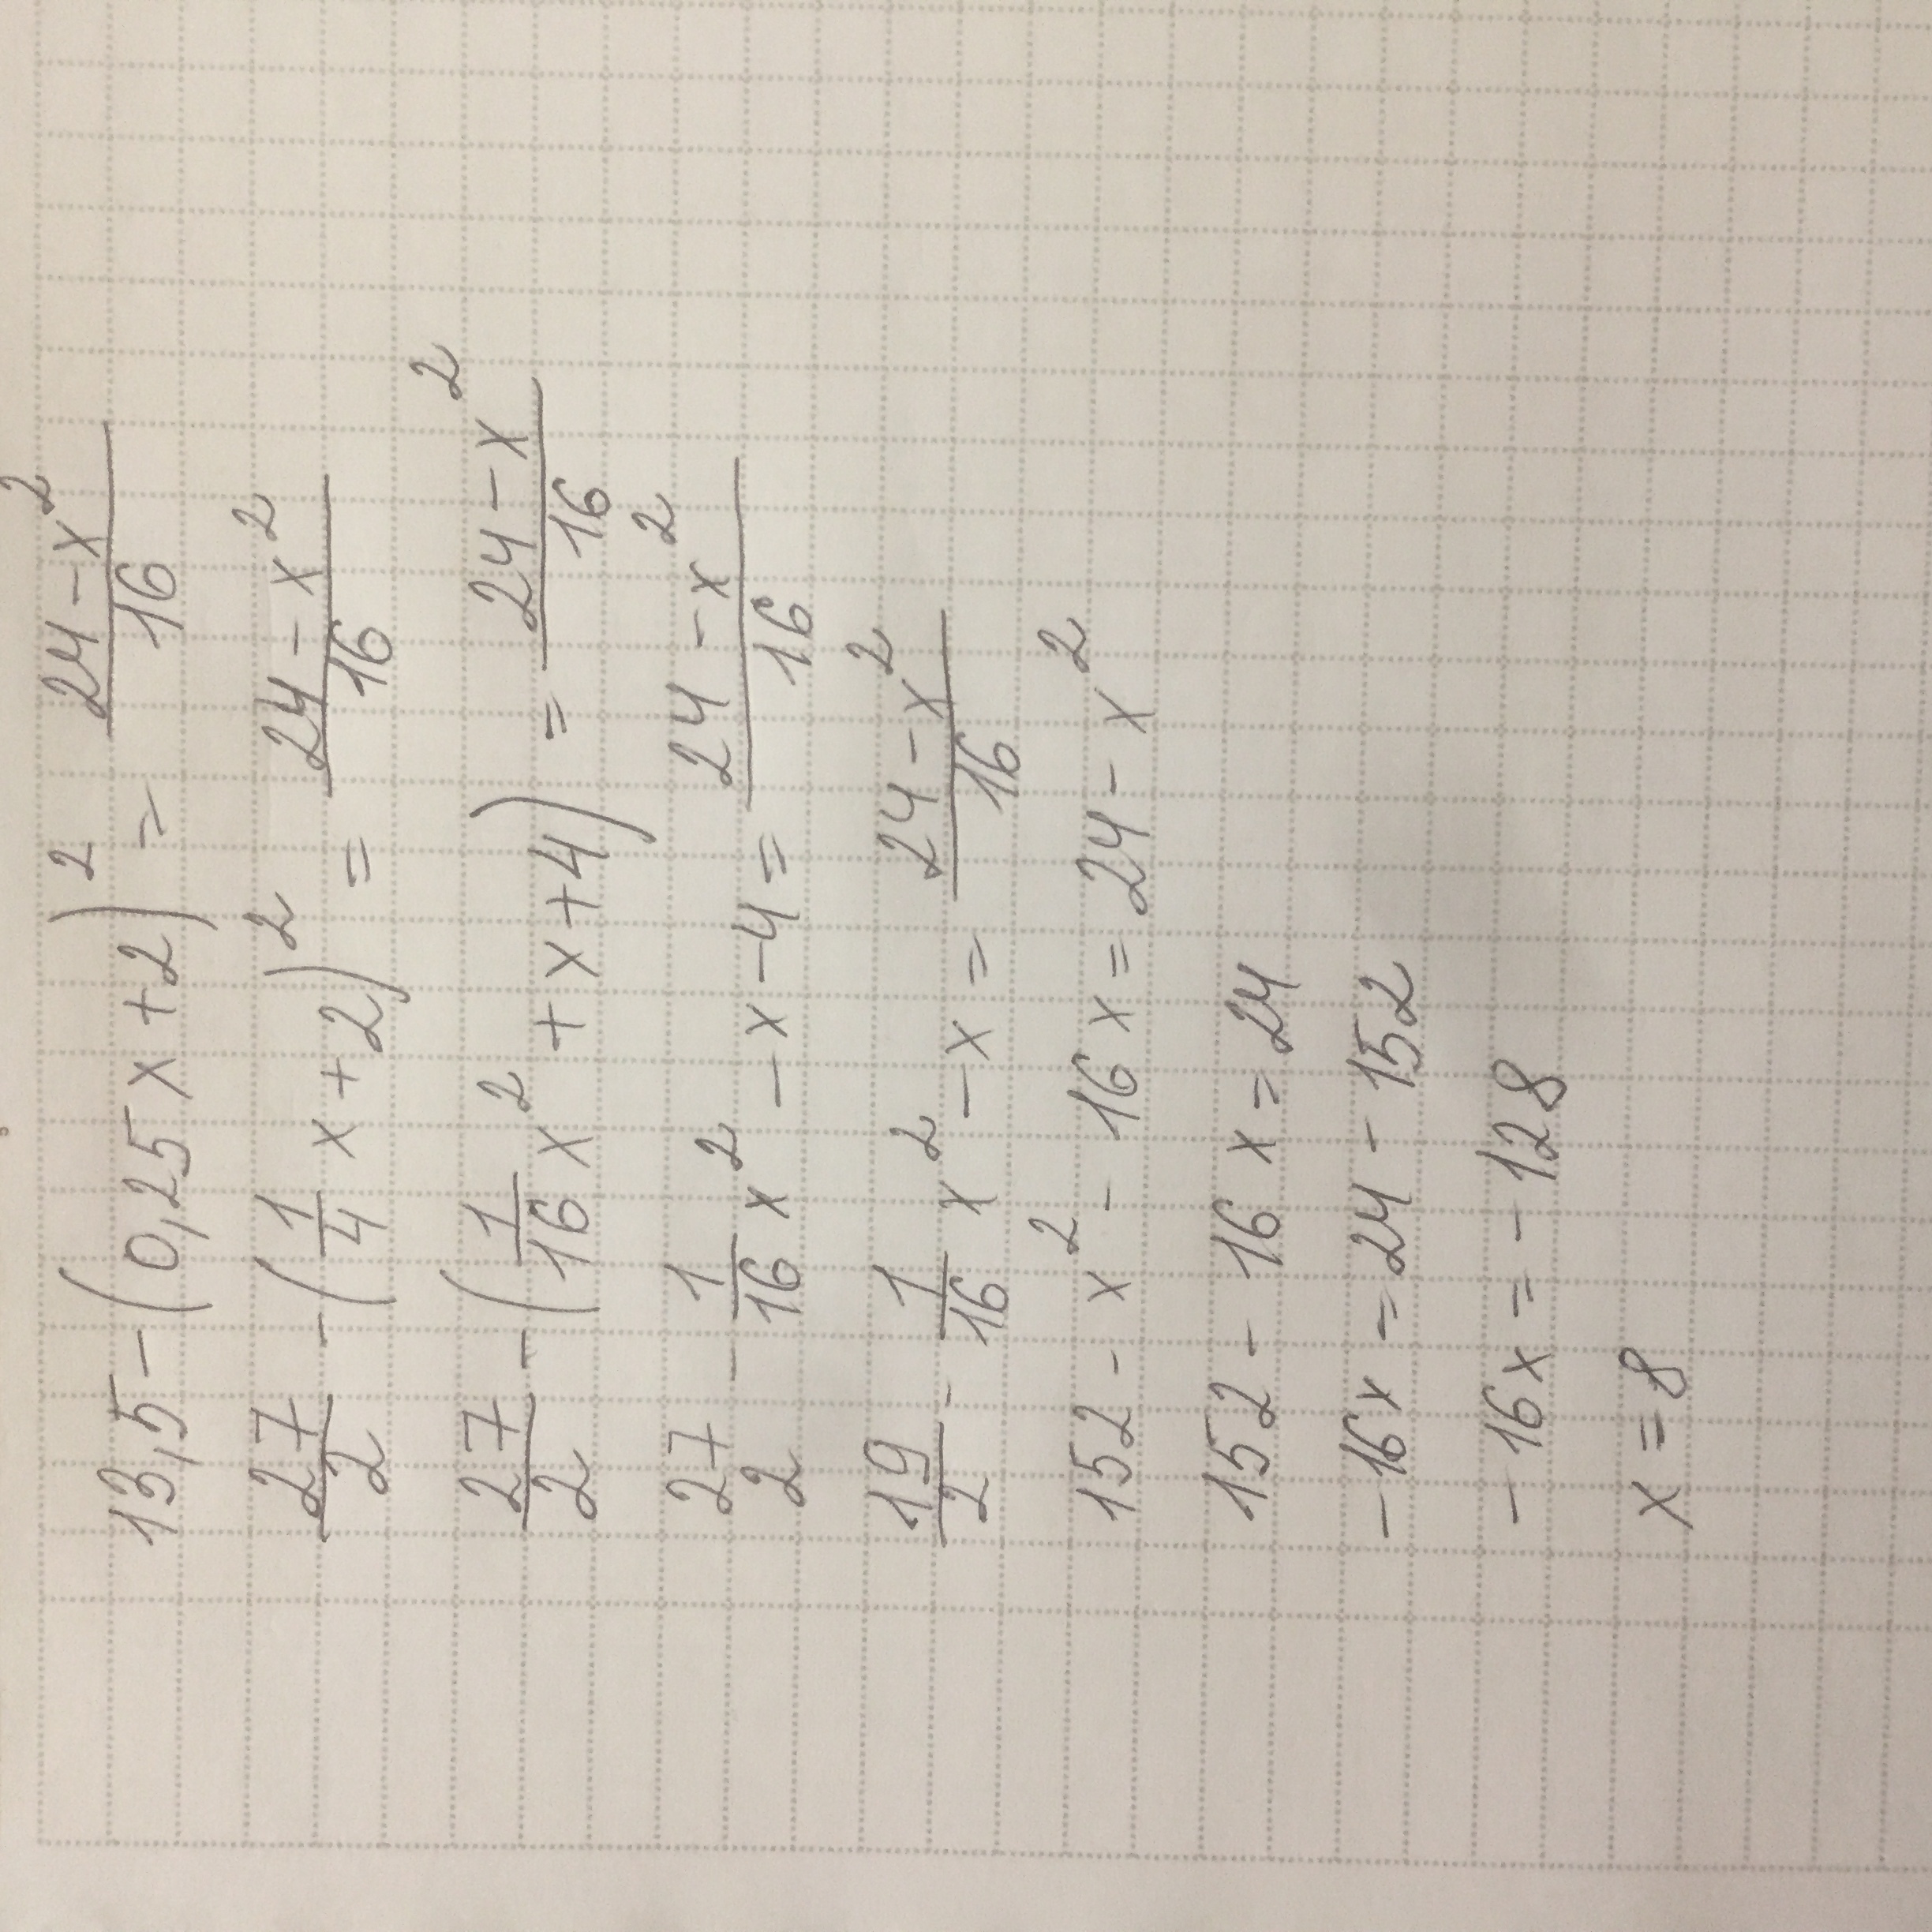 13,5 - (0,25x + 2)² = (24 - x²)/16
27/2 - (1/4 x + 2)² = (24 - x²)/16
27/2 - (1/16 x² + x + 4) = (24 - x²)/16
27/2 - 1/16 x² - x - 4 = (24 - x²)/16
19/2 - 1/16 x² - x = (24 - x²)/16
152 - x² - 16x = 24 - x²
152 - 16x = 24
-16x = 24 - 152
-16x = -128
x = 8